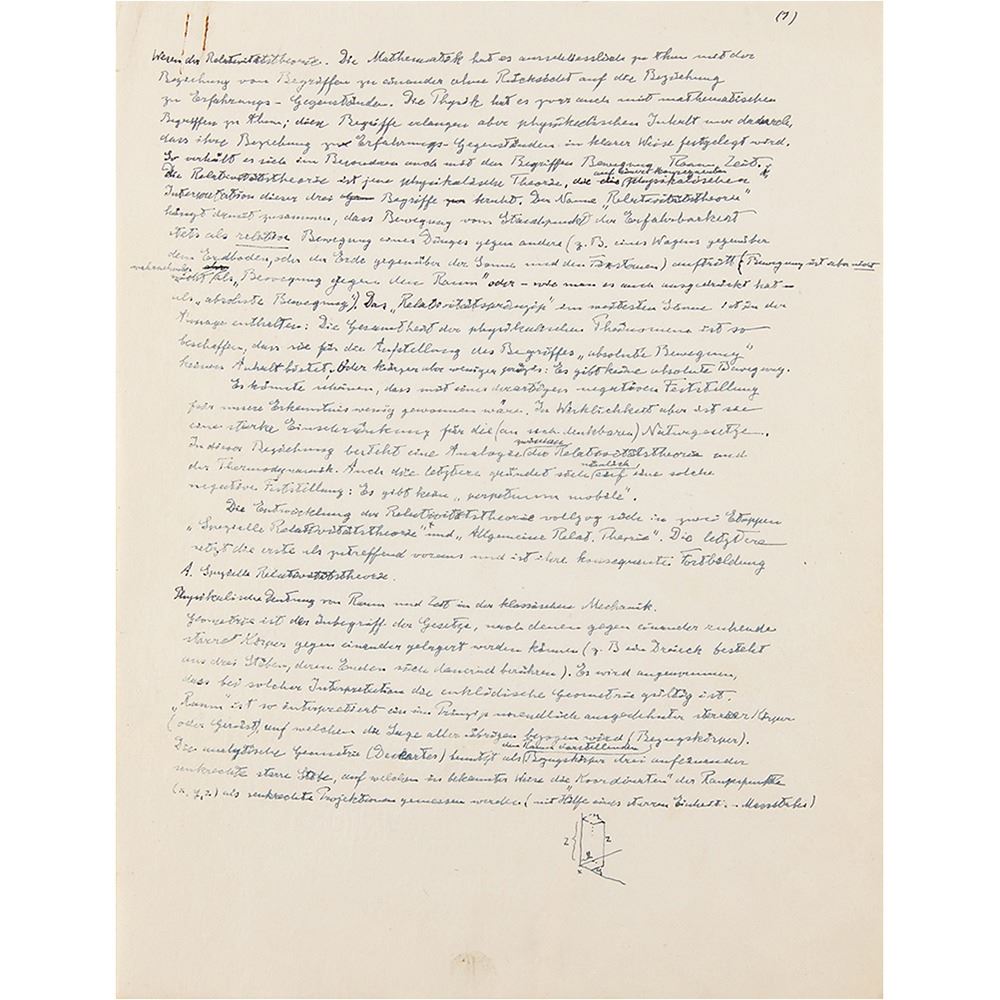 (1)
Wesen der Relativitätstheorie. Die Mathematik hat es ausschliesslich zu thun mit der
Beziehung von Begriffen zu einander ohne Rücksicht auf die Beziehung
zu Erfahrungs-Gegenständen. Die Physik hat es zwar auch mit mathematischen
Begriffen zu thun; diese Begriffe erlangen aber physikalischen Inhalt nur dadurch,
dass ihre Beziehung zu Erfahrungs-Gegenständen in klarer Weise festgelegt wird.
So verhält es sich im Besonderen auch mit den Begriffen Bewegung, Raum, Zeit.
auf einer konsequenten
Die Relativitätstheorie ist jene physikalische Theorie, die physikalischen
Interpretation dieser drei Begriffe beruht. Der Name „Relativitätstheorie"
hängt damit zusammen, dass Bewegung vom Standpunkt der Erfahrbarkeit
stets als relative Bewegung eines Dinges gegen andere (z. B. eines Wagens gegenüber
dem Erdboden, oder der Erde gegenüber der Sonne und den Fixsternen) auftritt (Bewegung ist aber nicht
nicht als „Bewegung gegen den Raum" oder – wie man es auch ausgedrückt hat –
als „absolute Bewegung"). Das „Relativitätsprinzip" im weitesten Sinne ist in der
Aussage enthalten: Die Gesamtheit der physikalischen Phänomene ist so
beschaffen, dass sie für die Aufstellung des Begriffes „absolute Bewegung"
keinen Anhalt bietet. Oder kürzer aber weniger präzis: Es gibt keine absolute Bewegung.
Es könnte scheinen, dass mit einer derartigen negativen Feststellung
für unsere Erkenntnis wenig gewonnen wäre. In Wirklichkeit aber ist sie
eine starke Einschränkung für die (an sich denkbaren) Naturgesetze.
zwischen
In dieser Beziehung besteht eine Analogie der Relativitätstheorie und
nämlich
der Thermodynamik. Auch die letztere gründet sich auf eine solche
negative Feststellung: Es gibt kein „perpetuum mobile".
Die Entwicklung der Relativitätstheorie vollzog sich in zwei Etappen
„Spezielle Relativitätstheorie" und „Allgemeine Relat. Theorie". Die letztere
setzt die erste als zutreffend voraus und ist ihre konsequente Fortbildung
A. Spezielle Relativitätstheorie.
Physikalische Deutung von Raum und Zeit in der klassischen Mechanik.
Geometrie ist der Inbegriff der Gesetze, nach denen gegen einander ruhende
starre Körper gegen einander gelagert werden können (z. B ein Dreieck besteht
aus drei Stäben, deren Enden sich dauernd berühren). Es wird angenommen,
dass bei solcher Interpretation die euklidische Geometrie gültig ist.
„Raum" ist so interpretiert ein im Prinzip unendlich ausgedehnter starrer Körper
(oder Gerüst), auf welchen die Lage aller übrigen bezogen wird (Bezugskörper).
den Raum darstellenden
Die analytische Geometrie (Descartes) benutzt als Bezugskörper drei aufeinander
senkrechte starre Stäbe, auf welchen in bekannter Weise die „Koordinaten" der Raumpunkte
(x, y, z) als senkrechte Projektionen gemessen werden (mit Hilfe eines starren Einheit.-Massstabes)
z z
x